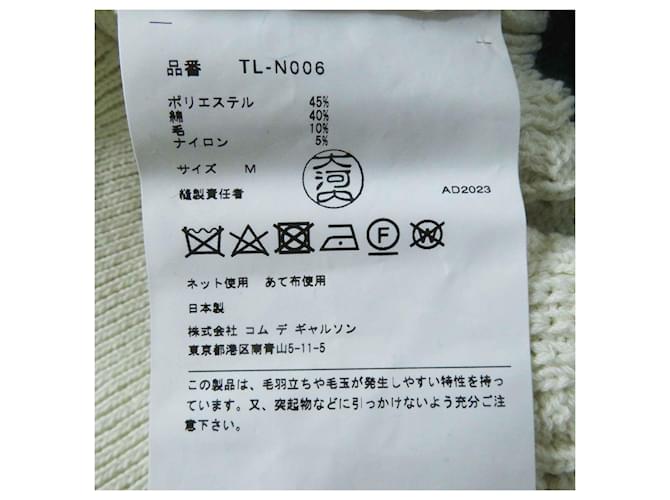 品番 TL-N006
ポリエステル 45%
綿 40%
毛 10%
ナイロン 5%
サイズ M
大河内
縫製責任者
AD2023
F
W
ネット使用 あて布使用
日本製
株式会社 コム デ ギャルソン
東京都港区南青山5-11-5
この製品は、毛羽立ちや毛玉が発生しやすい特性を持っ
ています。又、突起物などに引っかけないよう充分ご注
意下さい。